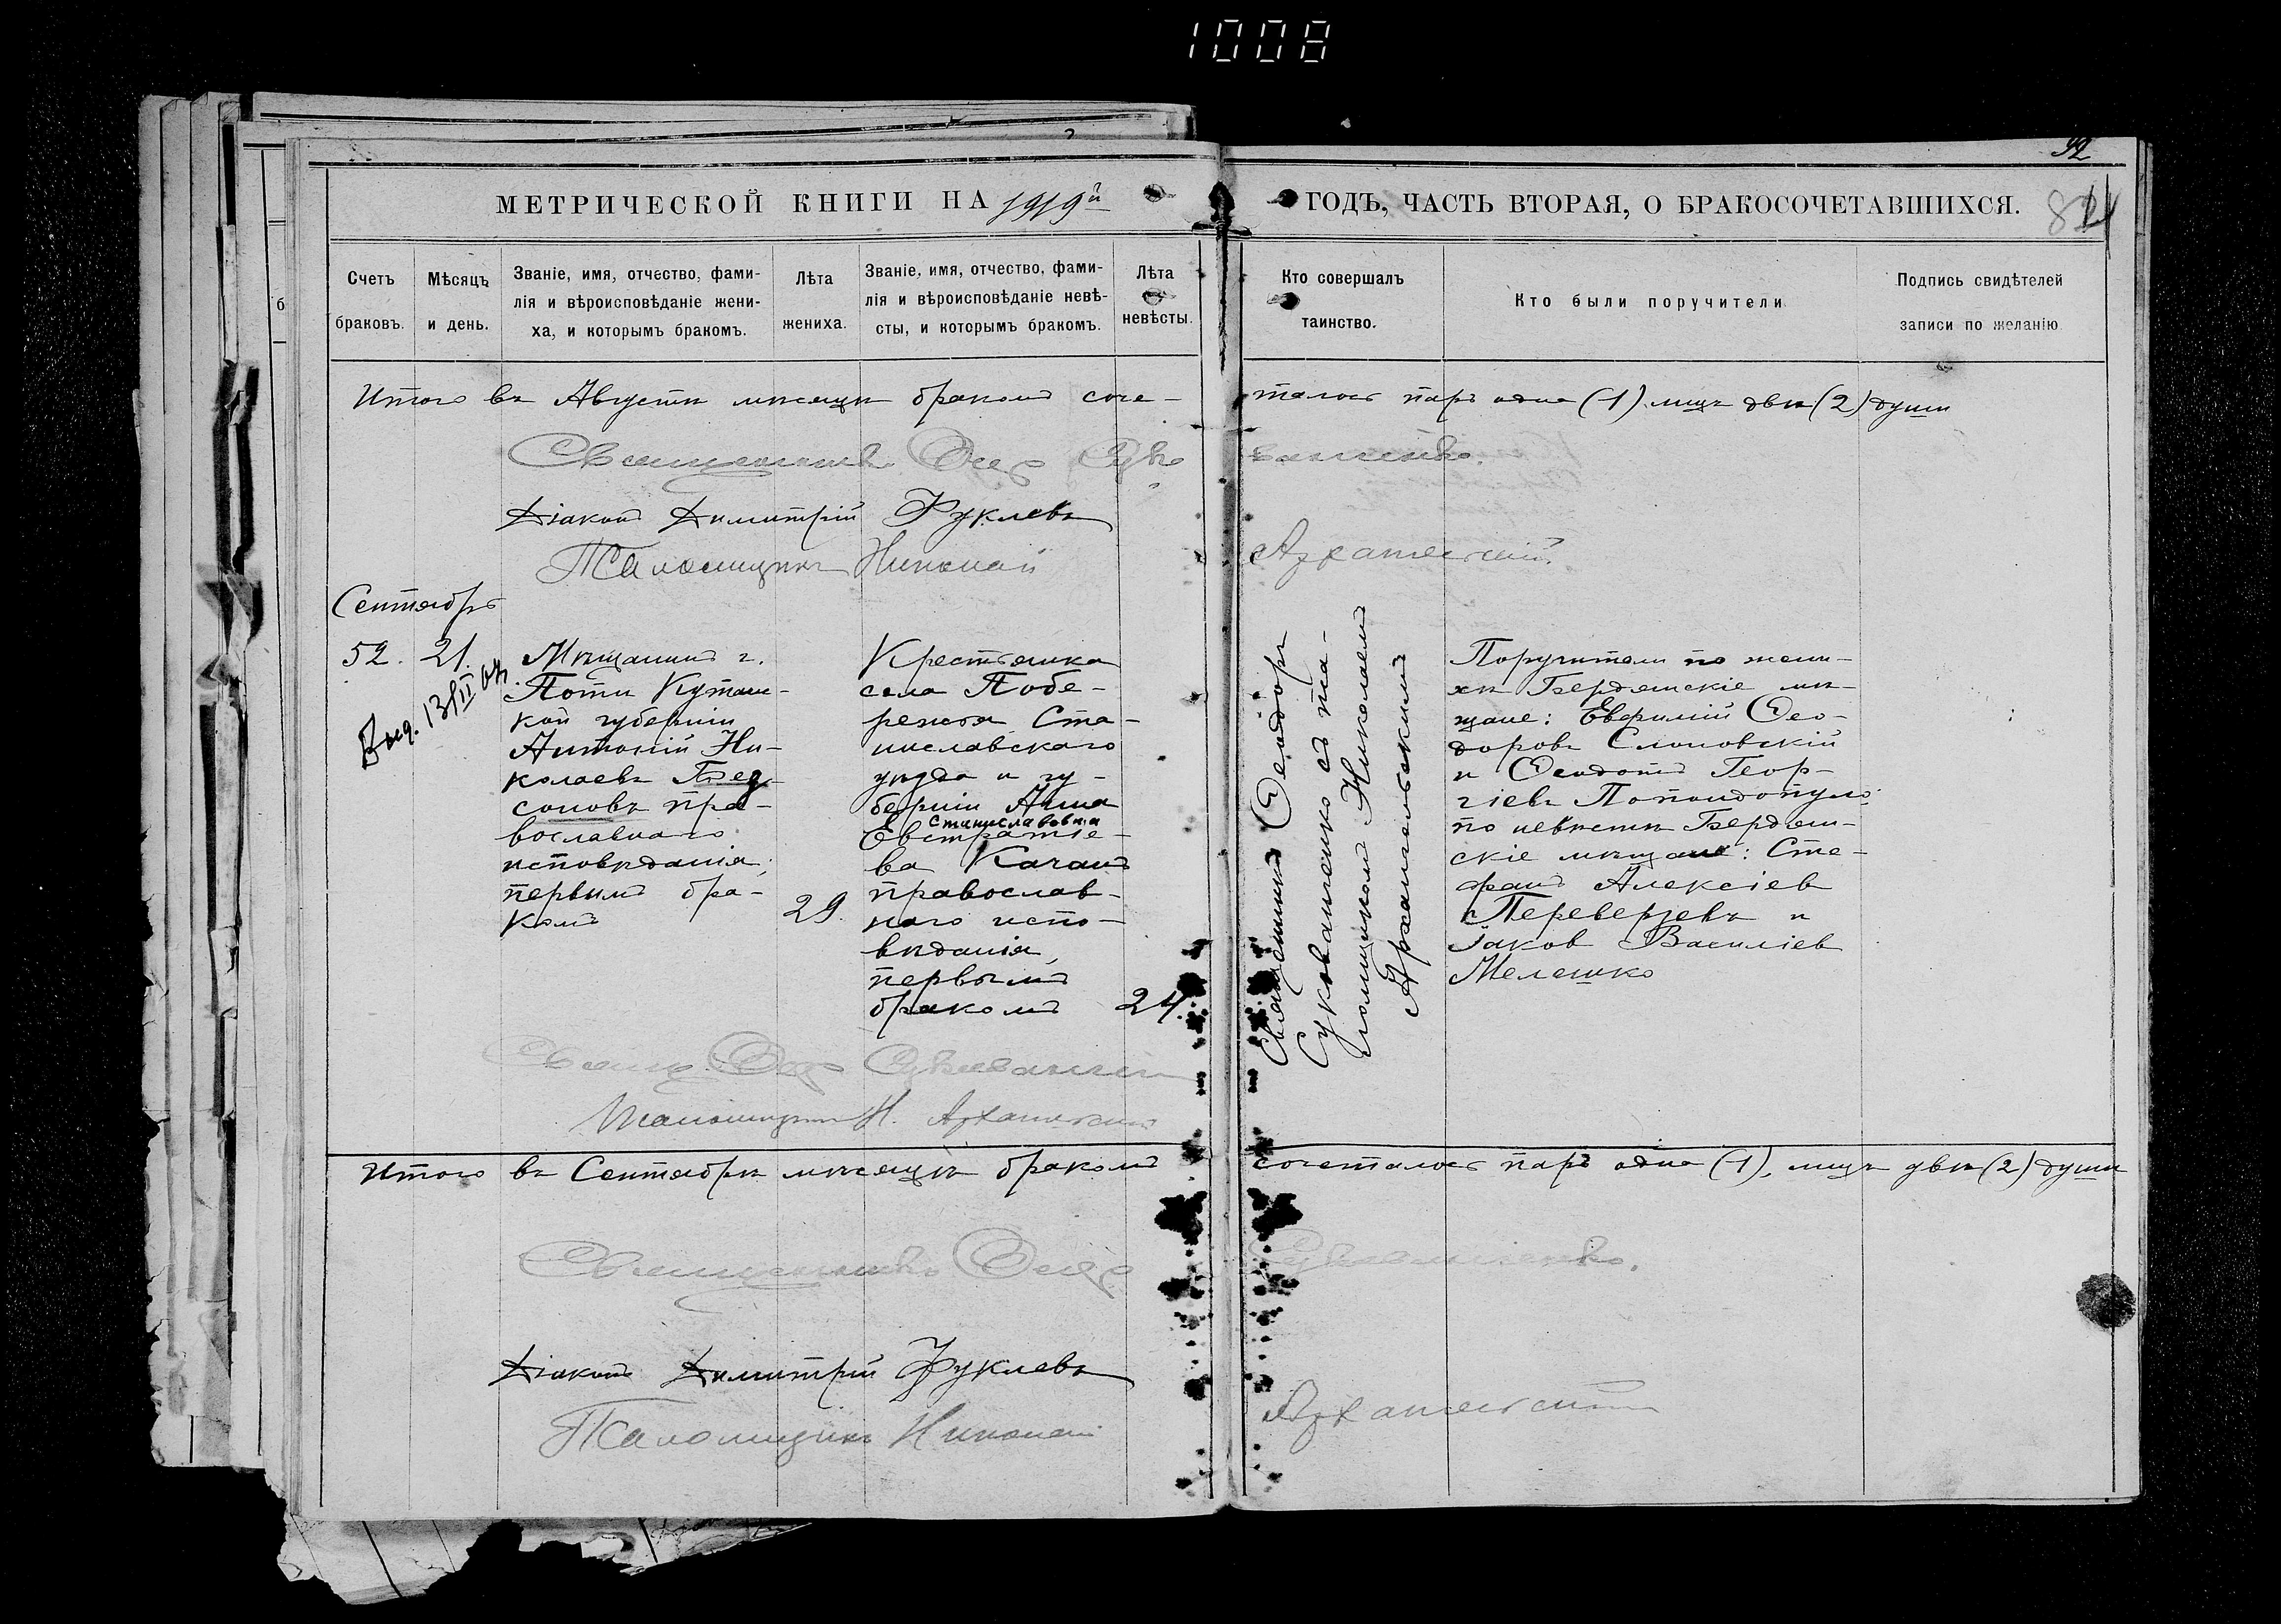 1008
92
МЕТРИЧЕСКОЙ КНИГИ НА 1919й ГОДЪ, ЧАСТЬ ВТОРАЯ, О БРАКОСОЧЕТАВШИХСЯ.
Счетъ браковъ.
Мѣсяцъ и день.
Званіе, имя, отчество, фами-
лія и вѣроисповѣданіе жени-
ха, и которымъ бракомъ.
Лѣта жениха.
Званіе, имя, отчество, фами-
лія и вѣроисповѣданіе невѣ-
сты, и которымъ бракомъ.
Лѣта невѣсты.
Кто совершалъ
таинство.
Кто были поручители
Подпись свидѣтелей
записи по желанію
Итого въ Августѣ мѣсяцѣ бракомъ соче-
талось паръ одна (1) лицъ двѣ (2) души
Священникъ Ѳеод Сукованченко.
Діаконъ Димитрій Фуклевъ
Псаломщикъ Николай Архангельскій.
Сентябрь
52. 21.
Выд. 13/II
Мѣщанинъ г.
Поти Кутаис-
кой губерніи
Антоній Ни-
колаевъ
соновъ пра-
вославнаго
исповѣданія,
первымъ бра-
комъ
29.
Крестьянка
села Побе-
режья Ста-
ниславскаго
уѣзда и гу-
берніи Анна
Станиславовна
Евстратіе-
ва Качанъ
православ-
наго испо-
вѣданія,
первымъ
бракомъ
24.
Священникъ Ѳеодоръ
Сукованченко съ пса-
ломщикомъ Николаемъ
Архангельскимъ
Поручители по жени-
хѣ Бердянскіе мѣ-
щане: Евфимій Ѳео-
доровъ Слоновскій
и Ѳеодотъ Геор-
гіевъ Попондопуло
по невѣстѣ Бердян-
скіе мѣщане: Сте-
фанъ Алексіев
Переверзевъ и
Іаков Василіев
Мелешко
Свящ. Ѳеод Сукованчен
Псаломщикъ Н. Архангельскій
Итого въ Сентябрѣ мѣсяцѣ бракомъ сочеталось паръ одна (1), лицъ двѣ (2) души
Священникъ Ѳеод Сукованченко.
Діаконъ Димитрій Фуклевъ
Псаломщикъ Николай Архангельскій